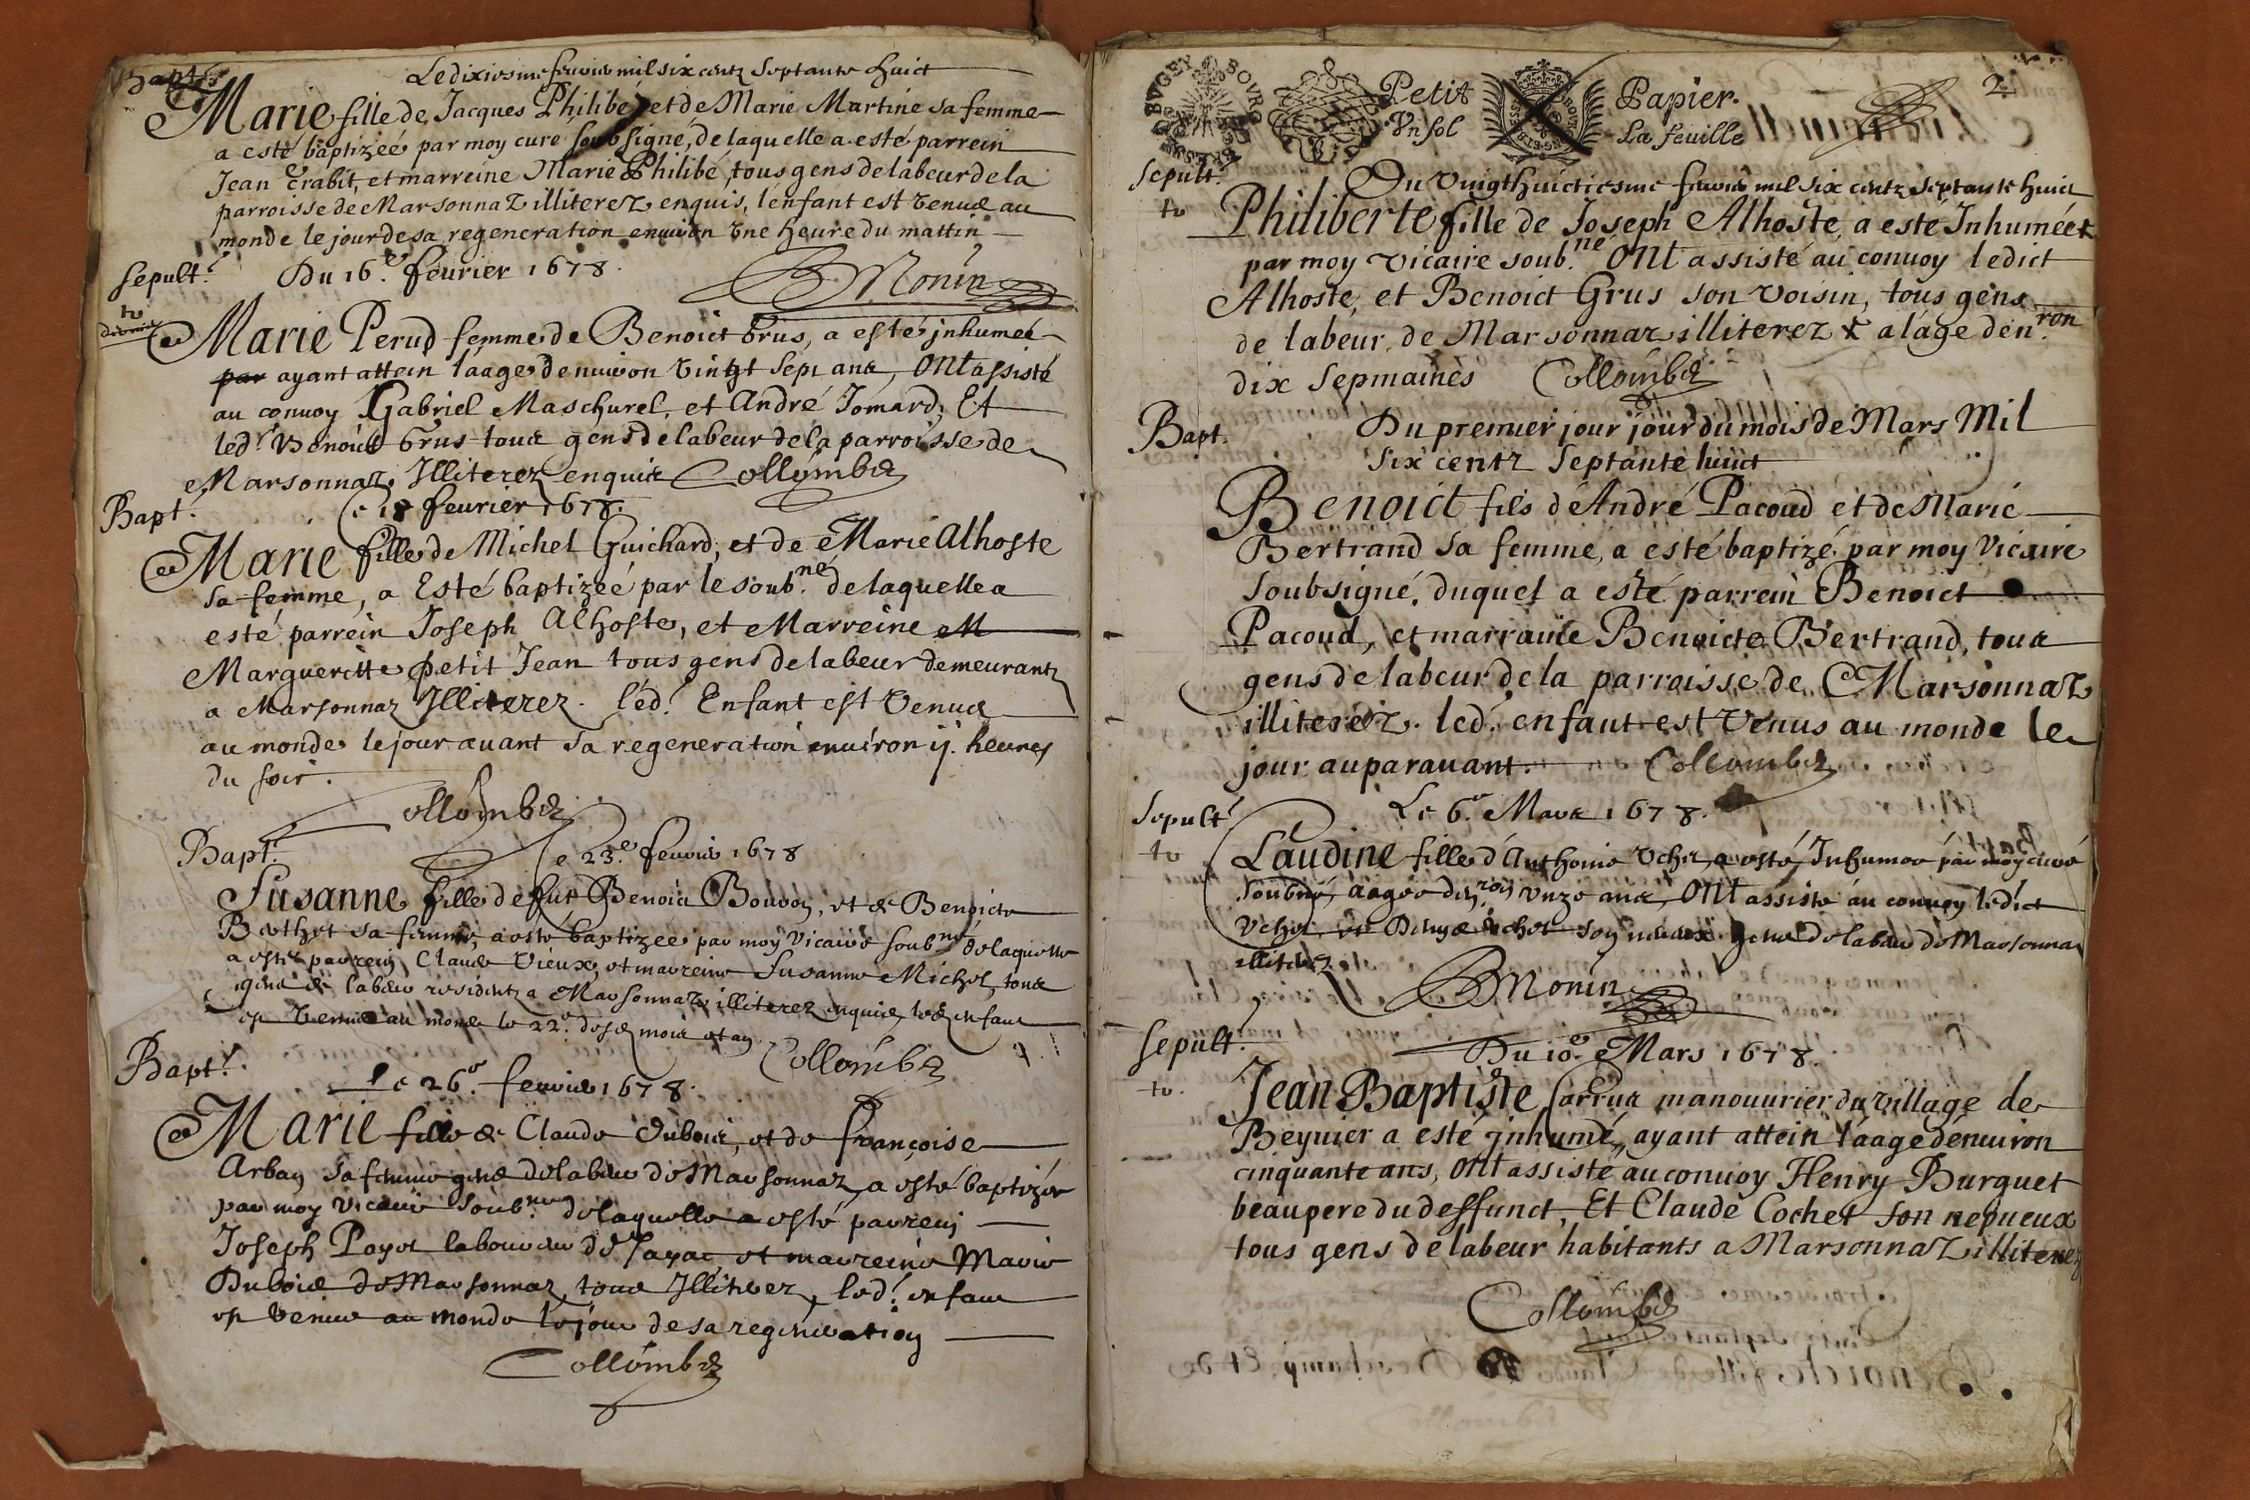 Bapt.
Le dixiesme feuvrier mil six centz septante huict
Marie fille de Jacques Philibé et de Marie Martine sa femme
a esté baptizeé par moy curé soubsigné, de laquelle a esté parrein
Jean Erabit, et marreine Marie Philibé, tous gens de labeur de la
parroisse de Marsonnaz illiterez enquis, l'enfant est venue au
monde le jour de sa regeneration environ vne heure du mattin
BMonin
Sepult.
Du 16.e fevrier 1678.
Marie Perud femme de Benoict Grus, a esté jnhumeé
par ayant attein l'aage denuiron vingt sept ans, Ont assisté
au convoy Gabriel Maschurel, et André Jomard, Et
led.t Benoict Grus tous gens de labeur de la parroisse de
Marsonnaz Illiterez enquis Collombet
Bapt.
Le 18 feurier 1678.
Marie fille de Michel Guichard, et de Marie Alhoste
sa femme, a Esté baptizeé par le soub.ne de laquelle a
esté parrein Joseph Alhoste, et Marreine M
Margueritte petit Jean tous gens de labeur demeurantz
a Marsonnaz Illiterez. led.t Enfant est Venue
au monde le jour auant sa regeneration enuiron ij. heures
du soir.
Collombet
Bapt.
Le 23.e feurier 1678
Susanne fille de fut Benoict Bouvoy, et de Benoicte
Berthet sa femme, a esté baptizeé par moy vicaire soub.né de laquelle
a esté parrein Claude Vieux, et marreine Susanne Michel, tous
gens de labeur residentz a Marsonnaz illiterez enquis, led enfant
est Venue au monde le 22.e desd mois et an
Collombet
Bapt.t
Le 26.e feurier 1678.
Marie fille de Claude Dubois, et de françoise
Arban sa femme gens de labeur de Marsonnaz, a esté baptizée
par moy vicaire soub.né de laquelle a esté parrein
Joseph Poyet laboureur de Jayac, et marreine Marie
Dubois de Marsonnaz, tous Illiterez, led.t enfant
est Venue au monde le jour de sa regeneration
Collombet
BVGEY SOVRG BRESSE
Petit Papier.
Vn sol La feuille
2
Sepult.
Du vingthuictiesme feurier mil six centz septante huict
Philiberte fille de Joseph Alhoste, a esté Inhumée
par moy vicaire soub.ne Ont assisté au conuoy ledict
Alhoste, et Benoict Grus son voisin, tous gens
de labeur de Marsonnaz illiterez x a l'age den.ron
dix sepmaines Collombet
Bapt.
Du premier jour jour du mois de Mars Mil
Six centz Septante huict
Benoict fils d'André Pacoud et de Marie
Bertrand sa femme, a esté baptizé par moy Vicaire
soubsigné, duquel a esté parrein Benoict
Pacoud, et marraine Benoicte Bertrand, tous
gens de labeur de la parroisse de Marsonnaz
illiterez. led.t enfant est Venus au monde le
jour auparauant. Collombet
Sepult.
Le 6.e Mars 1678.
Claudine fille d'Anthoine Vcher, a esté Inhumeé par moy curé
soubné, aagée d'en.ron vnze ans, Ont assisté au conuoy ledict
Vcher, et Denys Vcher son neueux gens de labeur de Marsonnaz
illiterez
BMonin
Sepult.
Du 10.e Mars 1678.
Jean Baptiste Sarrus manouurier du village de
Beynier a esté jnhumé, ayant attein l'aage denuiron
cinquante ans, Ont assisté au conuoy Henry Burguet
beaupere du deffunct, Et Claude Cochet son nepueux
tous gens de labeur habitants a Marsonnaz illiterez
Collombet